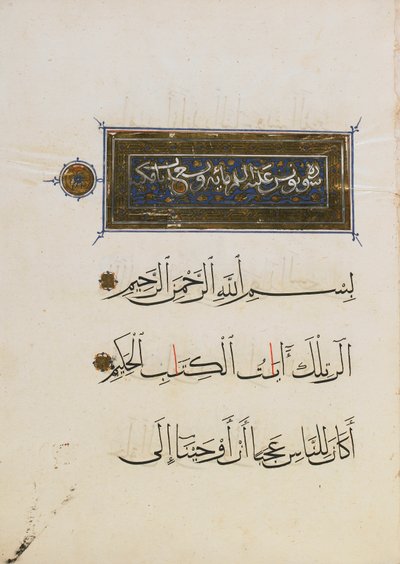 سورة يونس عليه السلم مايه وتسع ايات مكيه
بِسْمِ ٱللَّهِ ٱلرَّحْمَنِ ٱلرَّحِيمِ
الر تِلْكَ ءَايَاتُ ٱلْكِتَابِ ٱلْحَكِيمِ
أَكَانَ لِلنَّاسِ عَجَبًا أَنْ أَوْحَيْنَآ إِلَى